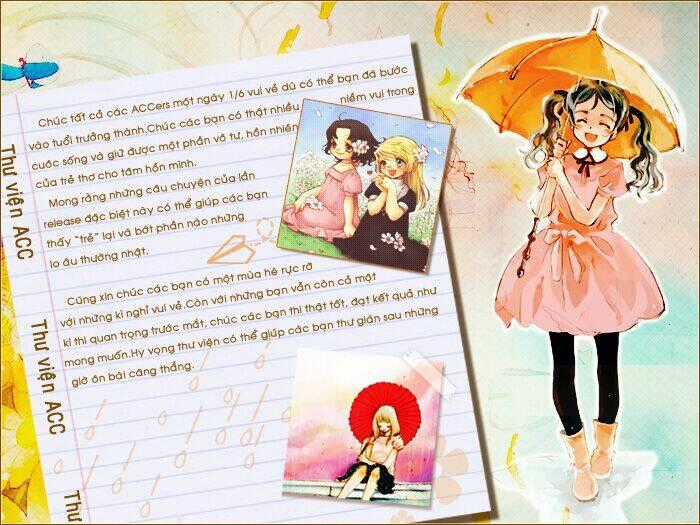 Chúc tất cả các ACCers một ngày 1/6 vui vẻ dù có thể bạn đã bước
vào tuổi trưởng thành.Chúc các bạn có thật nhiều niềm vui trong
cuôc sống và giữ được một phần vô tư, hồn nhiên
của trẻ thơ cho tâm hồn mình.
Mong rằng những câu chuyện của lần
release đặc biệt này có thể giúp các bạn
thấy "trẻ" lại và bớt phần nào những
lo âu thường nhật.
Cũng xin chúc các bạn có một mùa hè rực rỡ
với những kì nghỉ vui vẻ.Còn với những bạn vẫn còn cả một
kì thi quan trọng trước mắt, chúc các bạn thi thật tốt, đạt kết quả như
mong muốn.Hy vọng thư viện có thể giúp các bạn thư giãn sau những
giờ ôn bài căng thẳng.
Thư viện ACC
Thư viện ACC
Th